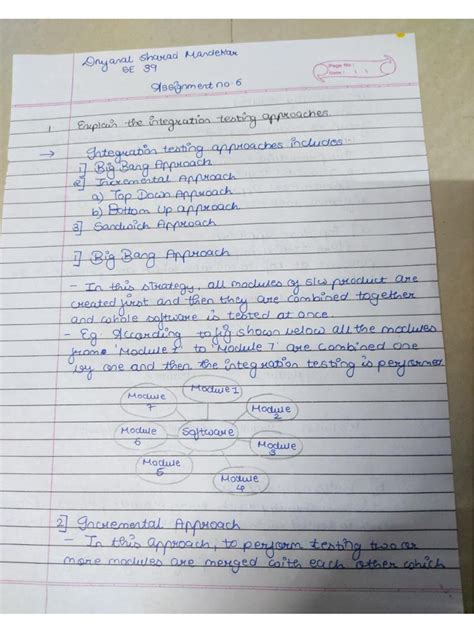 Sharad Mandekar
SE 39
Page No:
Date: / /
Assignment no-6
1. Explain the integration testing approaches.
→ Integration testing approaches includes
1] Big Bang Approach
2] Incremental Approach
a) Top Down Approach
b) Bottom Up approach
3] Sandwich Approach
1] Big Bang Approach
- In this strategy, all modules of s/w product are
created first and then they are combined together
and whole software is tested at once.
- Eg According to fig shown below all the modules
from 'Module 1' to 'Module 7' are combined one
by one and then the integration testing is performed
Module 1
Module 7
Module 2
Module 6
Software
Module 3
Module 5
Module 4
2] Incremental Approach
- In this approach, to perform testing two or
more modules are merged with each other which